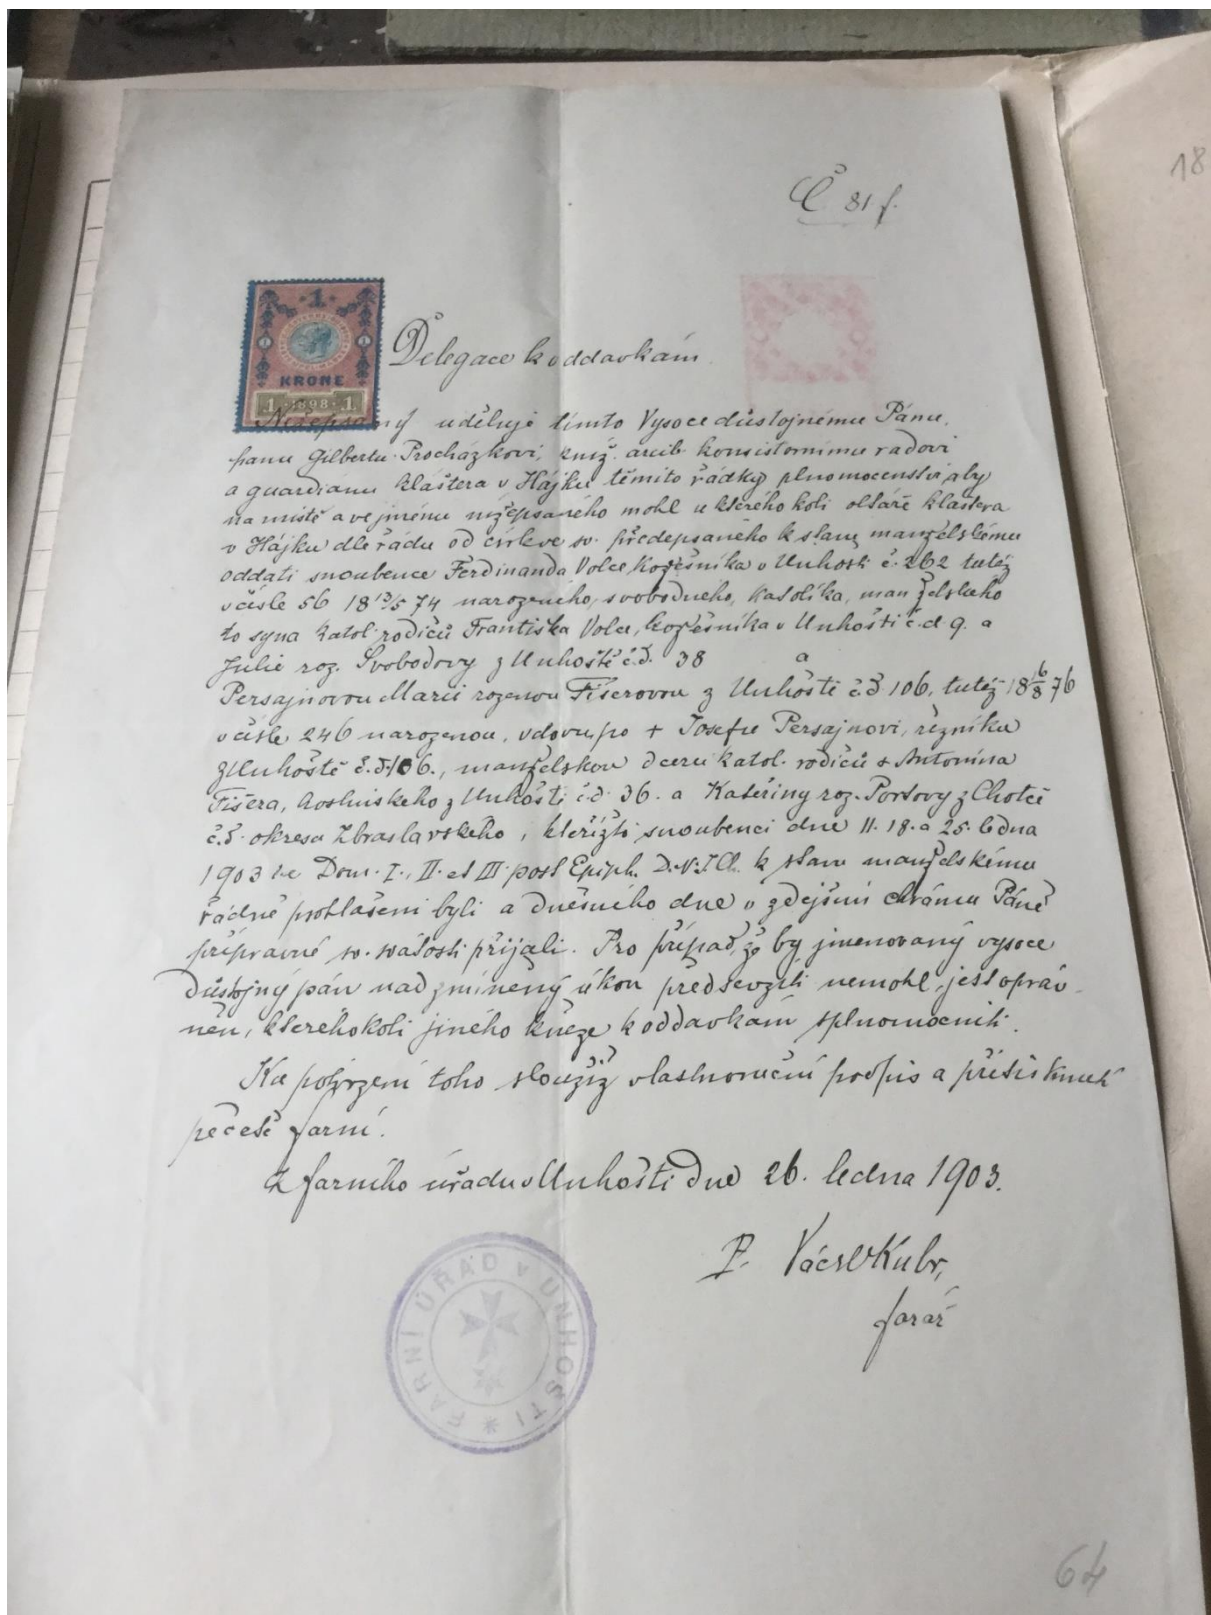 18
Č 81 f.
1
KRONE
1 1898 1
Delegace k oddavkám.
Nížepsaný uděluje tímto Vysocedůstojnému Pánu,
panu Gilbertu Procházkovi, kníž. arcib. konsistornímu radovi
a guardianu kláštera v Hájku těmito řádky plnomocenství, aby
na místě a ve jménu nížepsaného mohl u kteréhokoli oltáře kláštera
v Hájku dle řádu od církve sv. předepsaného k stavu manželskému
oddati snoubence Ferdinanda Volce, kožešníka v Unhošti č. 262 tutéž
v čísle 56 18 13/5 74 narozeného, svobodného, katolíka, manželského
to syna katol. rodičů Františka Volce, kožešníka v Unhošti č. d. 9. a
Julie roz. Svobodovy z Unhoště č. d. 38 a
Persajnovou Marii rozenou Fišerovou z Unhoště č. d 106, tutéž 18 6/8 76
v čísle 246 narozenou, vdovu po + Josefu Persajnovi, řezníku
z Unhoště č. d. 106., manželskou dceru katol. rodičů + Antonína
Fišera, z Unhošti č. d. 36. a Kateřiny roz. z Chotče
č. d. okresu Zbraslavského, kteřížto snoubenci dne 11. 18. a 25. ledna
1903 Dom. I., II. et III. post Epiph. D. N. J. Ch. k stavu manželskému
řádně prohlášeni byli a dnešního dne v zdejším chrámu Páně
přípravné sv. svátosti přijali. Pro případ, že by jmenovaný vysoce
důstojný pán nadzmíněný úkon předsevzíti nemohl, jest opráv-
něn, kteréhokoli jiného kněze k oddavkám splnomocniti.
Ku potvrzení toho sloužiž vlastnoruční podpis a přitisknutí
pečetě farní.
Z farního úřadu v Unhošti dne 26. ledna 1903.
P. Václ Kubr,
farář
FARNÍ ÚŘAD V UNHOŠTI
64